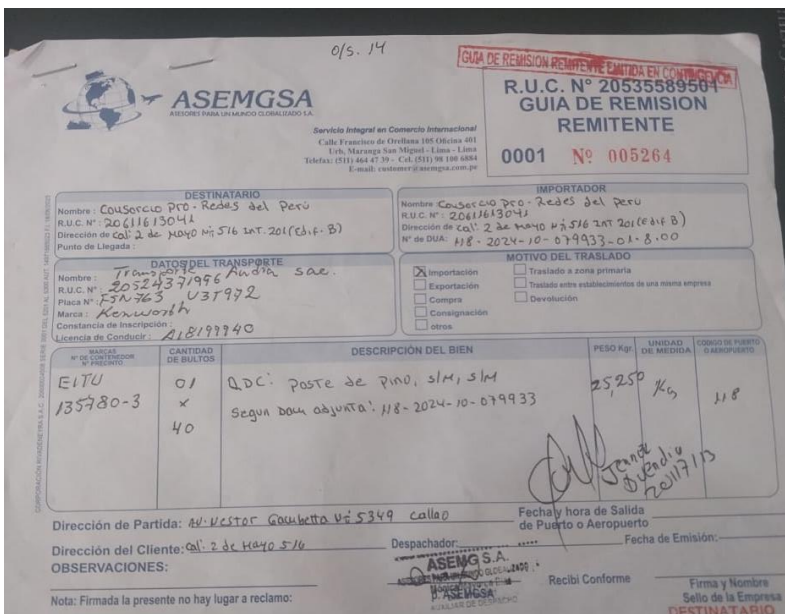 O/S. 14
GUIA DE REMISION REMITENTE EMITIDA EN CONTINGENCIA
ASEMGSA
ASESORES PARA UN MUNDO GLOBALIZADO S.A.
R.U.C. N° 20535589501
GUIA DE REMISION
REMITENTE
0001 Nº 005264
Servicio Integral en Comercio Internacional
Calle Francisco de Orellana 105 Oficina 401
Urb. Maranga San Miguel - Lima - Lima
Telefax: (511) 464 47 39 - Cel. (511) 98 100 6884
E-mail: customer@asemgsa.com.pe
DESTINATARIO
Nombre : Consorcio Pro-Redes del Perú
R.U.C. N° : 20611613041
Dirección de Cal: 2 de Mayo Nº 516 INT. 201 (Edif. B)
Punto de Llegada :
IMPORTADOR
Nombre : Consorcio Pro-Redes del Perú
R.U.C. N° : 20611613041
Dirección de Cal: 2 de Mayo Nº 516 INT 201 (Edif. B)
N° de DUA: 118-2024-10-079933-01-8.00
DATOS DEL TRANSPORTE
Nombre : Transporte Andia sac.
R.U.C. N° : 20524371996
Placa N° : F5N763 V3T972
Marca : Kenworth
Constancia de Inscripción :
Licencia de Conducir : A18199940
MOTIVO DEL TRASLADO
X Importación
Exportación
Compra
Consignación
otros
Traslado a zona primaria
Traslado entre establecimientos de una misma empresa
Devolución
MARCAS
N° DE CONTENEDOR
N° PRECINTO
CANTIDAD
DE BULTOS
DESCRIPCIÓN DEL BIEN
PESO Kgr.
UNIDAD
DE MEDIDA
CODIGO DE PUERTO
O AEROPUERTO
EITU 01 QDC: Poste de Pino, S/M, S/M 25,250 Kg 118
135780-3 x Segun Dam adjunta: 118-2024-10-079933
40
Dirección de Partida: AV. Nestor Gambetta Nº 5349 Callao
Fecha y hora de Salida
de Puerto o Aeropuerto
Dirección del Cliente: Cal: 2 de Mayo 516
Despachador:
Fecha de Emisión:
OBSERVACIONES:
ASEMG S.A.
P. ASEMGSA
AUXILIAR DE DESPACHO
Recibi Conforme
Firma y Nombre
Sello de la Empresa
DESTINATARIO
Nota: Firmada la presente no hay lugar a reclamo: